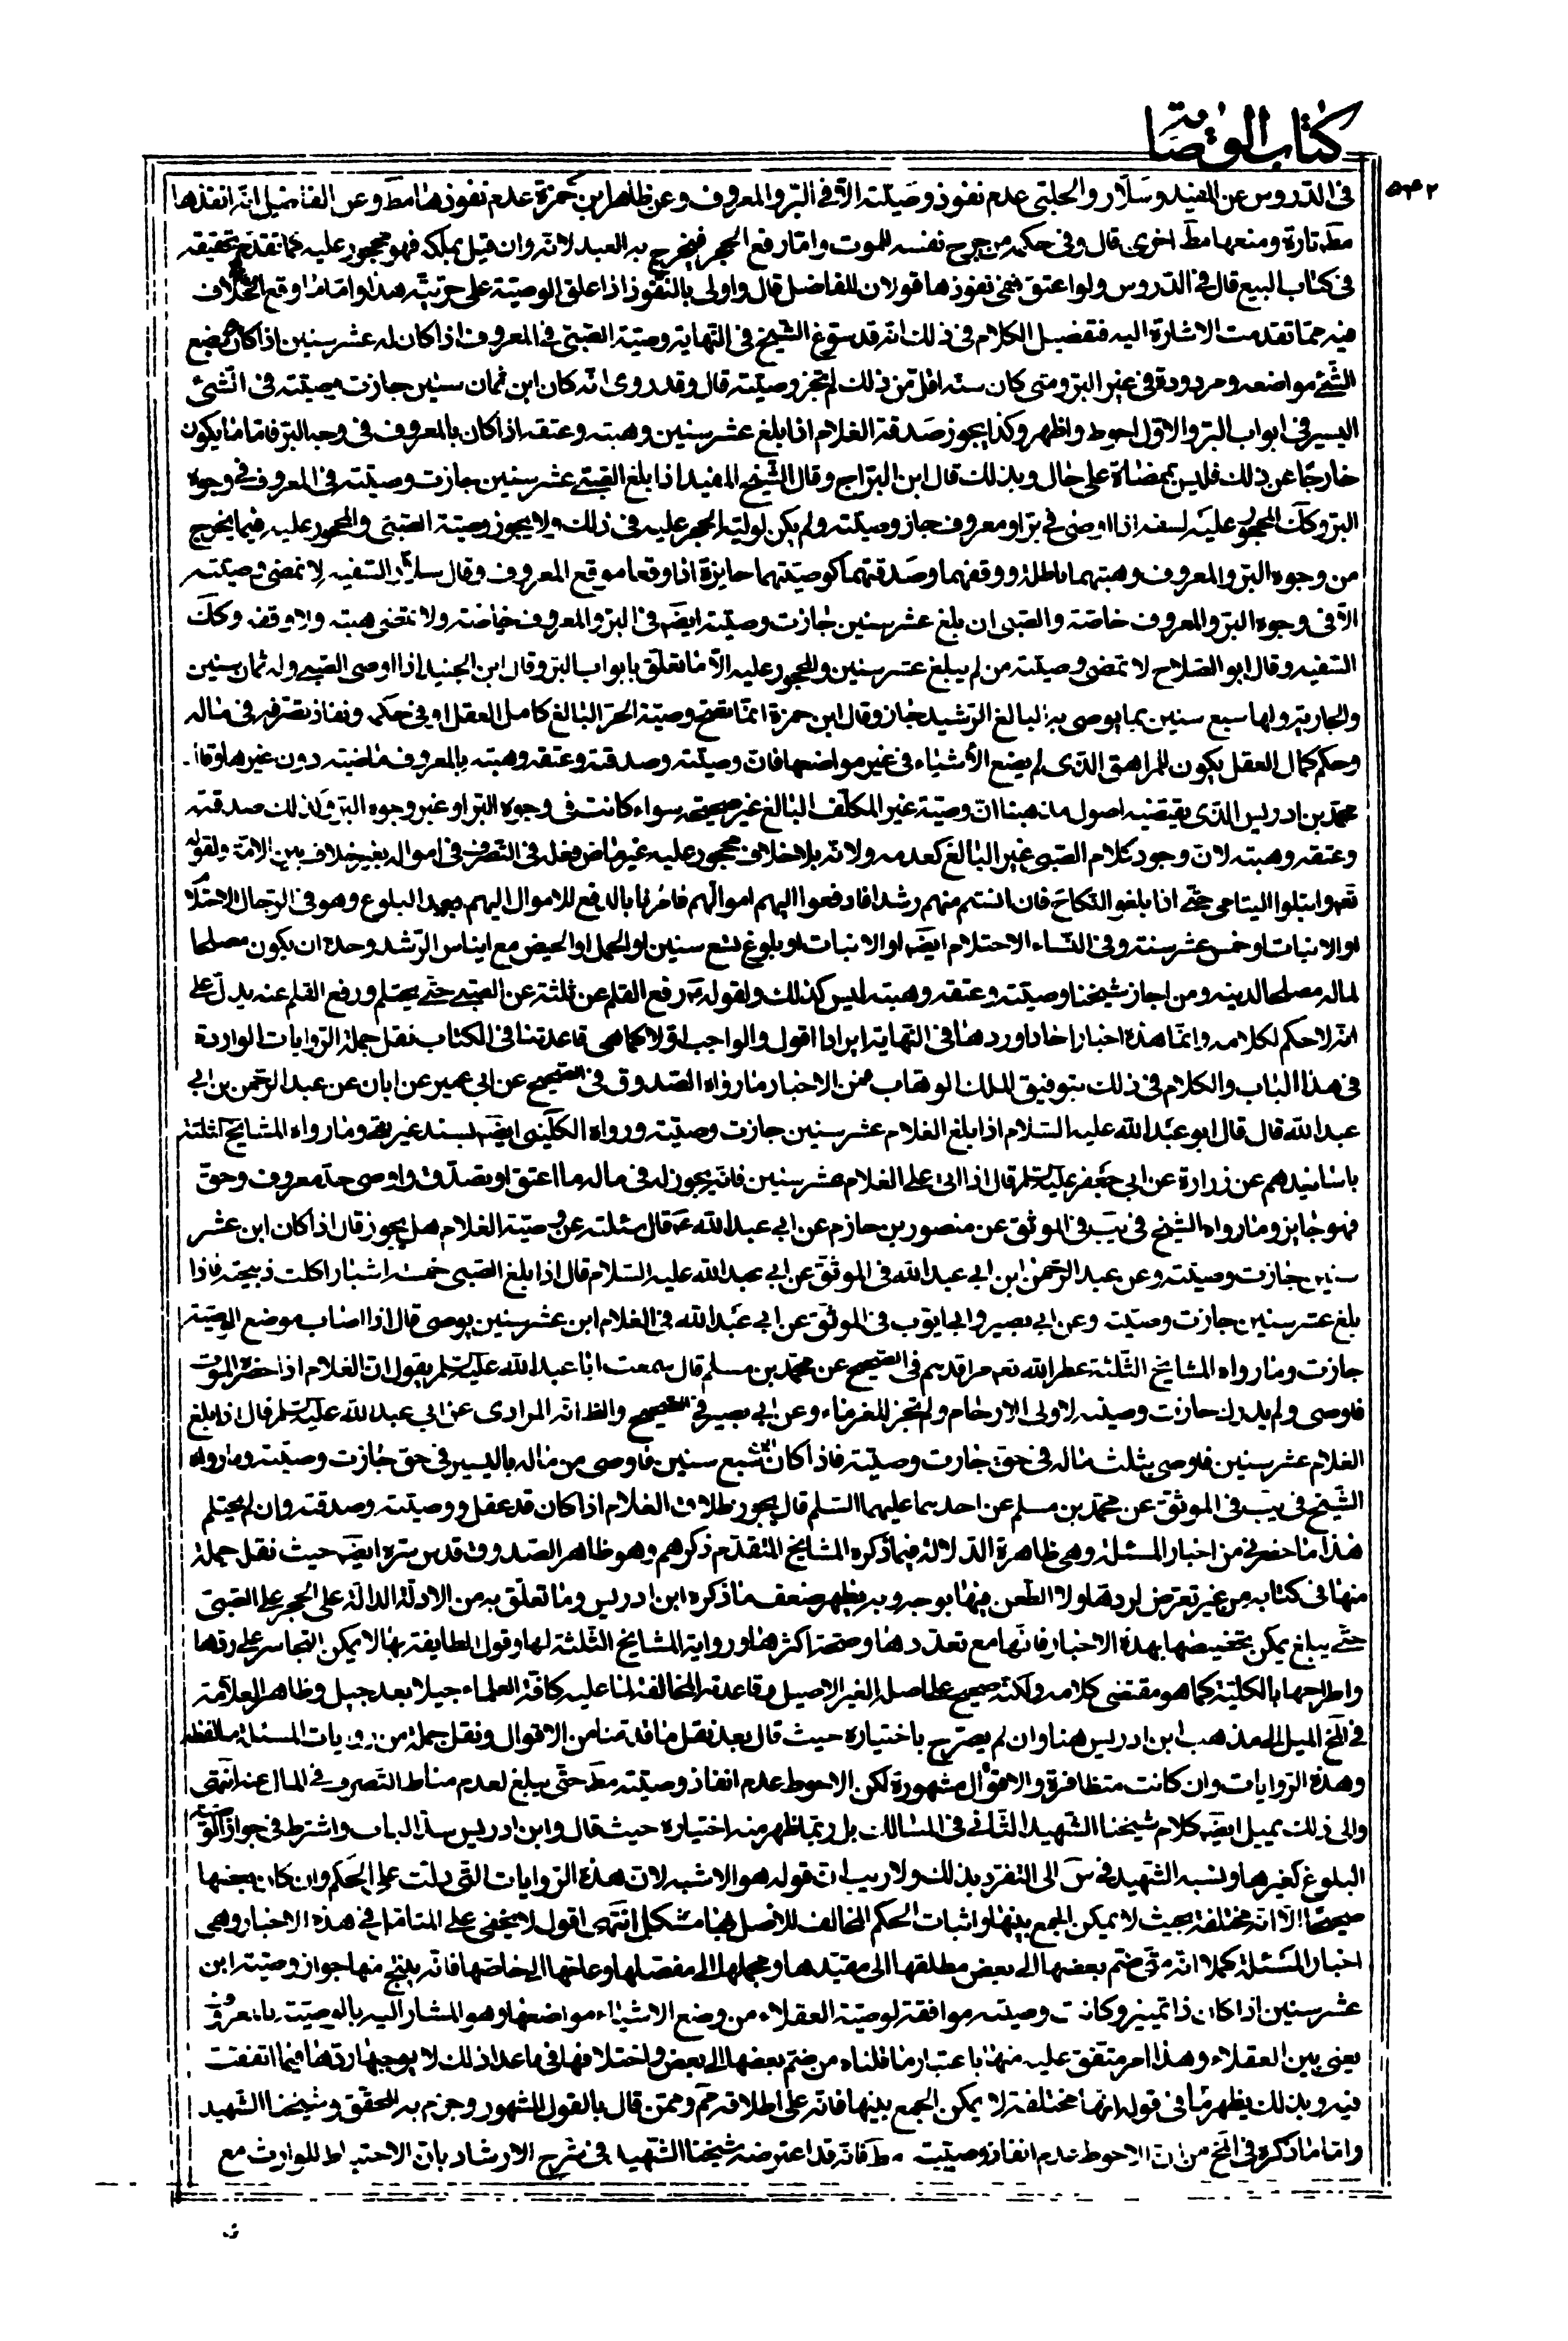 كتاب الوصايا
٥٣٢
في الدروس عن المفيد وسلار والحلبي عدم نفوذ وصيته الا في البر والمعروف وعن ظاهر ابن حمزة عدم نفوذها مط وعن الفاضل انه انفذها
مط تارة ومنعها مط اخرى قال وفي حكمه من جرح نفسه للموت واما رفع الحجر فيخرج به العبد لانه وان قيل بملكه فهو محجور عليه كما تقدم تحقيقه
في كتاب البيع قال في الدروس ولو اعتق ففي نفوذها قولان للفاضل قال واولى بالنفوذ اذا علق الوصية على حريته هذا واما ما وقع الخلاف
فيه مما تقدمت الاشارة اليه فتفصيل الكلام في ذلك انه قد سوغ الشيخ في النهاية وصية الصبي في المعروف اذا كان له عشر سنين اذا كان يضع
الشئ مواضعه ومردودة في غير البر ومتى كان سنه اقل من ذلك لم تجز وصيته قال وقد روى انه كان ابن ثمان سنين جازت وصيته في الشئ
اليسير في ابواب البر والاول احوط واظهر وكذا يجوز صدقة الغلام اذا بلغ عشر سنين وهبته وعتقه اذا كان بالمعروف في وجه البر فاما ما يكون
خارجا عن ذلك فليس بممضاة على حال وبذلك قال ابن البراج وقال الشيخ المفيد اذا بلغ الصبي عشر سنين جازت وصيته في المعروف في وجوه
البر وكك المحجور عليه لسفه اذا اوصى في بر او معروف جاز وصيته ولم يكن لوليه الحجر عليه في ذلك ولا يجوز وصية الصبي والمحجور عليه فيما يخرج
من وجوه البر والمعروف وهبتهما باطلة ووقفهما وصدقتهما كوصيتهما جايزة اذا وقعا موقع المعروف وقال سلار السفيه لا تمضى وصيته
الا في وجوه البر والمعروف خاصة والصبي ان بلغ عشر سنين جازت وصيته ايضه في البر والمعروف خاصة ولا تمضى هبته ولا وقفه وكك
السفيه وقال ابو الصلاح لا تمضى وصيته من لم يبلغ عشر سنين والمحجور عليه الا ما تعلق بابواب البر وقال ابن الجنيد اذا اوصى الصبي وله ثمان سنين
والجارية ولها سبع سنين بما يوصى به البالغ الرشيد جاز وقال ابن حمزة انما تصح وصية الحر البالغ كامل العقل او في حكمه ونفاذ تصرفه في ماله
وحكم كمال العقل يكون للمراهق الذى لم يضع الأشياء في غير مواضعها فان وصيته وصدقته وعتقه وهبته بالمعروف ماضية دون غيرها وقال
محمد بن ادريس الذى يقتضيه اصول مذهبنا ان وصية غير المكلف البالغ غير صحيحة سواء كانت في وجوه البر او غير وجوه البر وكذلك صدقته
وعتقه وهبته لان وجود كلام الصبي غير البالغ كعدمه ولانه بلا خلاف محجور عليه غير ماض فعله في التصرف في امواله بغير خلاف بين الامة ولقوله
تعه وابتلوا اليتامى حتى اذا بلغوا النكاح فان انستم منهم رشدا فادفعوا اليهم اموالهم فامرنا بالدفع للاموال اليهم بعد البلوغ وهو في الرجال الاحتلام
او الانبات او خمس عشر سنة وفي النساء الاحتلام ايضه او الانبات او بلوغ تسع سنين او الحمل او الحيض مع ايناس الرشد وحده ان يكون مصلحا
لماله مصلحا لدينه ومن اجاز شيخنا وصيته وعتقه وهبته ليس كذلك ولقوله ص رفع القلم عن ثلثة عن الصبي حتى يحتلم ورفع القلم عنه يدل على
انه لا حكم لكلامه وانما هذه اخبار احاد اوردها في النهاية ايرادا اقول والواجب اولا كما هى قاعدتنا في الكتاب نقل جملة الروايات الواردة
في هذا الباب والكلام في ذلك بتوفيق الملك الوهاب فمن الاخبار ما رواه الصدوق في الصحيح عن ابى عمير عن ابان عن عبد الرحمن بن ابي
عبد الله قال قال ابو عبد الله عليه السلام اذا بلغ الغلام عشر سنين جازت وصيته ورواه الكليني ايضه بسند غير نقى وما رواه المشايخ الثلثة
باسانيدهم عن زرارة عن ابى جعفر عليه السلم قال اذا اتى على الغلام عشر سنين فانه يجوز له في ماله ما اعتق او تصدق واوصى حد معروف وحق
فهو جايز وما رواه الشيخ في يب في الموثق عن منصور بن حازم عن ابى عبد الله ع قال سئلته عن وصية الغلام هل يجوز قال اذا كان ابن عشر
سنين جازت وصيته وعن عبد الرحمن ابن ابى عبد الله في الموثق عن ابى عبد الله عليه السلام قال اذا بلغ الصبي خمسة اشبار اكلت ذبيحته فاذا
بلغ عشر سنين جازت وصيته وعن ابى بصير وابى ايوب في الموثق عن ابى عبد الله في الغلام ابن عشر سنين يوصى قال اذا اصاب موضع الوصية
جازت وما رواه المشايخ الثلثة عطر الله تعه مراقدهم في الصحيح عن محمد بن مسلم قال سمعت ابا عبد الله عليه السلم يقول ان الغلام اذا حضره الموت
فاوصى ولم يدرك جازت وصيته لاولى الارحام ولم تجز للغرباء وعن ابى بصير في الصحيح والظ انه المرادى عن ابى عبد الله عليه السلم قال اذا بلغ
الغلام عشر سنين فاوصى بثلث ماله في حق جازت وصيته فاذا كان ابن سبع سنين فاوصى من ماله باليسير في حق جازت وصيته وما رواه
الشيخ في يب في الموثق عن محمد بن مسلم عن احدهما عليهما السلم قال يجوز طلاق الغلام اذا كان قد عقل ووصيته وصدقته وان لم يحتلم
هذا ما حضرنى من اخبار المسئلة وهى ظاهرة الدلالة فيما ذكره المشايخ المتقدم ذكرهم وهو ظاهر الصدوق قدس سره ايضه حيث نقل جملة
منها في كتابه من غير تعرض لردها ولا الطعن فيها بوجه وبه يظهر ضعف ما ذكره ابن ادريس وما تعلق به من الادلة الدالة على الحجر على الصبي
حتى يبلغ يمكن تخصيصها بهذه الاخبار فانها مع تعددها وصحة اكثرها ورواية المشايخ الثلثة لها وقول الطايفة بها لا يمكن التجاسر على ردها
واطراحها بالكلية كما هو مقتضى كلامه ولكنه صحيح على اصله الغير الاصيل وقاعدته المخالفة لما عليه كافة العلماء جيلا بعد جيل وظاهر العلامة
في لخ الميل الى مذهب ابن ادريس هنا وان لم يصرح باختياره حيث قال بعد نقل ما قدمنا من الاقوال ونقل جملة من روايات المسئلة ما لفظه
وهذه الروايات وان كانت متظافرة والاقوال مشهورة لكن الاحوط عدم انفاذ وصيته مط حتى يبلغ لعدم مناط التصرف في المال عنه انتهى
والى ذلك يميل ايضه كلام شيخنا الشهيد الثاني في المسالك بل ربما ظهر منه اختياره حيث قال وابن ادريس سد الباب واشترط في جواز الوصية
البلوغ كغيرها ونسبه الشهيد في س الى التفرد بذلك ولا ريب ان قوله هو الاشبه لان هذه الروايات التى دلت على الحكم وان كان بعضها
صحيحا الا انه مختلفة بحيث لا يمكن الجمع بينها واثبات الحكم المخالف للاصل بها مشكل انتهى اقول لا يخفى على المتامل في هذه الاخبار وهى
اخبار المسئلة كملا انه متى ضم بعضها الى بعض مطلقها الى مقيدها ومجملها الى مفصلها وعامها الى خاصها فانه ينتج منها جواز وصية ابن
عشر سنين اذا كان ذا تمييز وكانت وصيته موافقة لوصية العقلاء من وضع الاشياء مواضعها وهو المشار اليه بالوصية بالمعروف
يعنى بين العقلاء وهذا امر متفق عليه منها باعتبار ما قلناه من ضم بعضها الى بعض واختلافها في ما عدا ذلك لا يوجب ردها فيما اتفقت
فيه وبذلك يظهر ما في قوله انها مختلفة لا يمكن الجمع بينها فانه على اطلاقه مم وممن قال بالقول المشهور وجزم به المحقق وشيخنا الشهيد
واما ما ذكره في لخ من ان الاحوط عدم انفاذ وصيته مط فانه قد اعترضه شيخنا الشهيد في شرح الارشاد بان الاحتياط للوارث مع